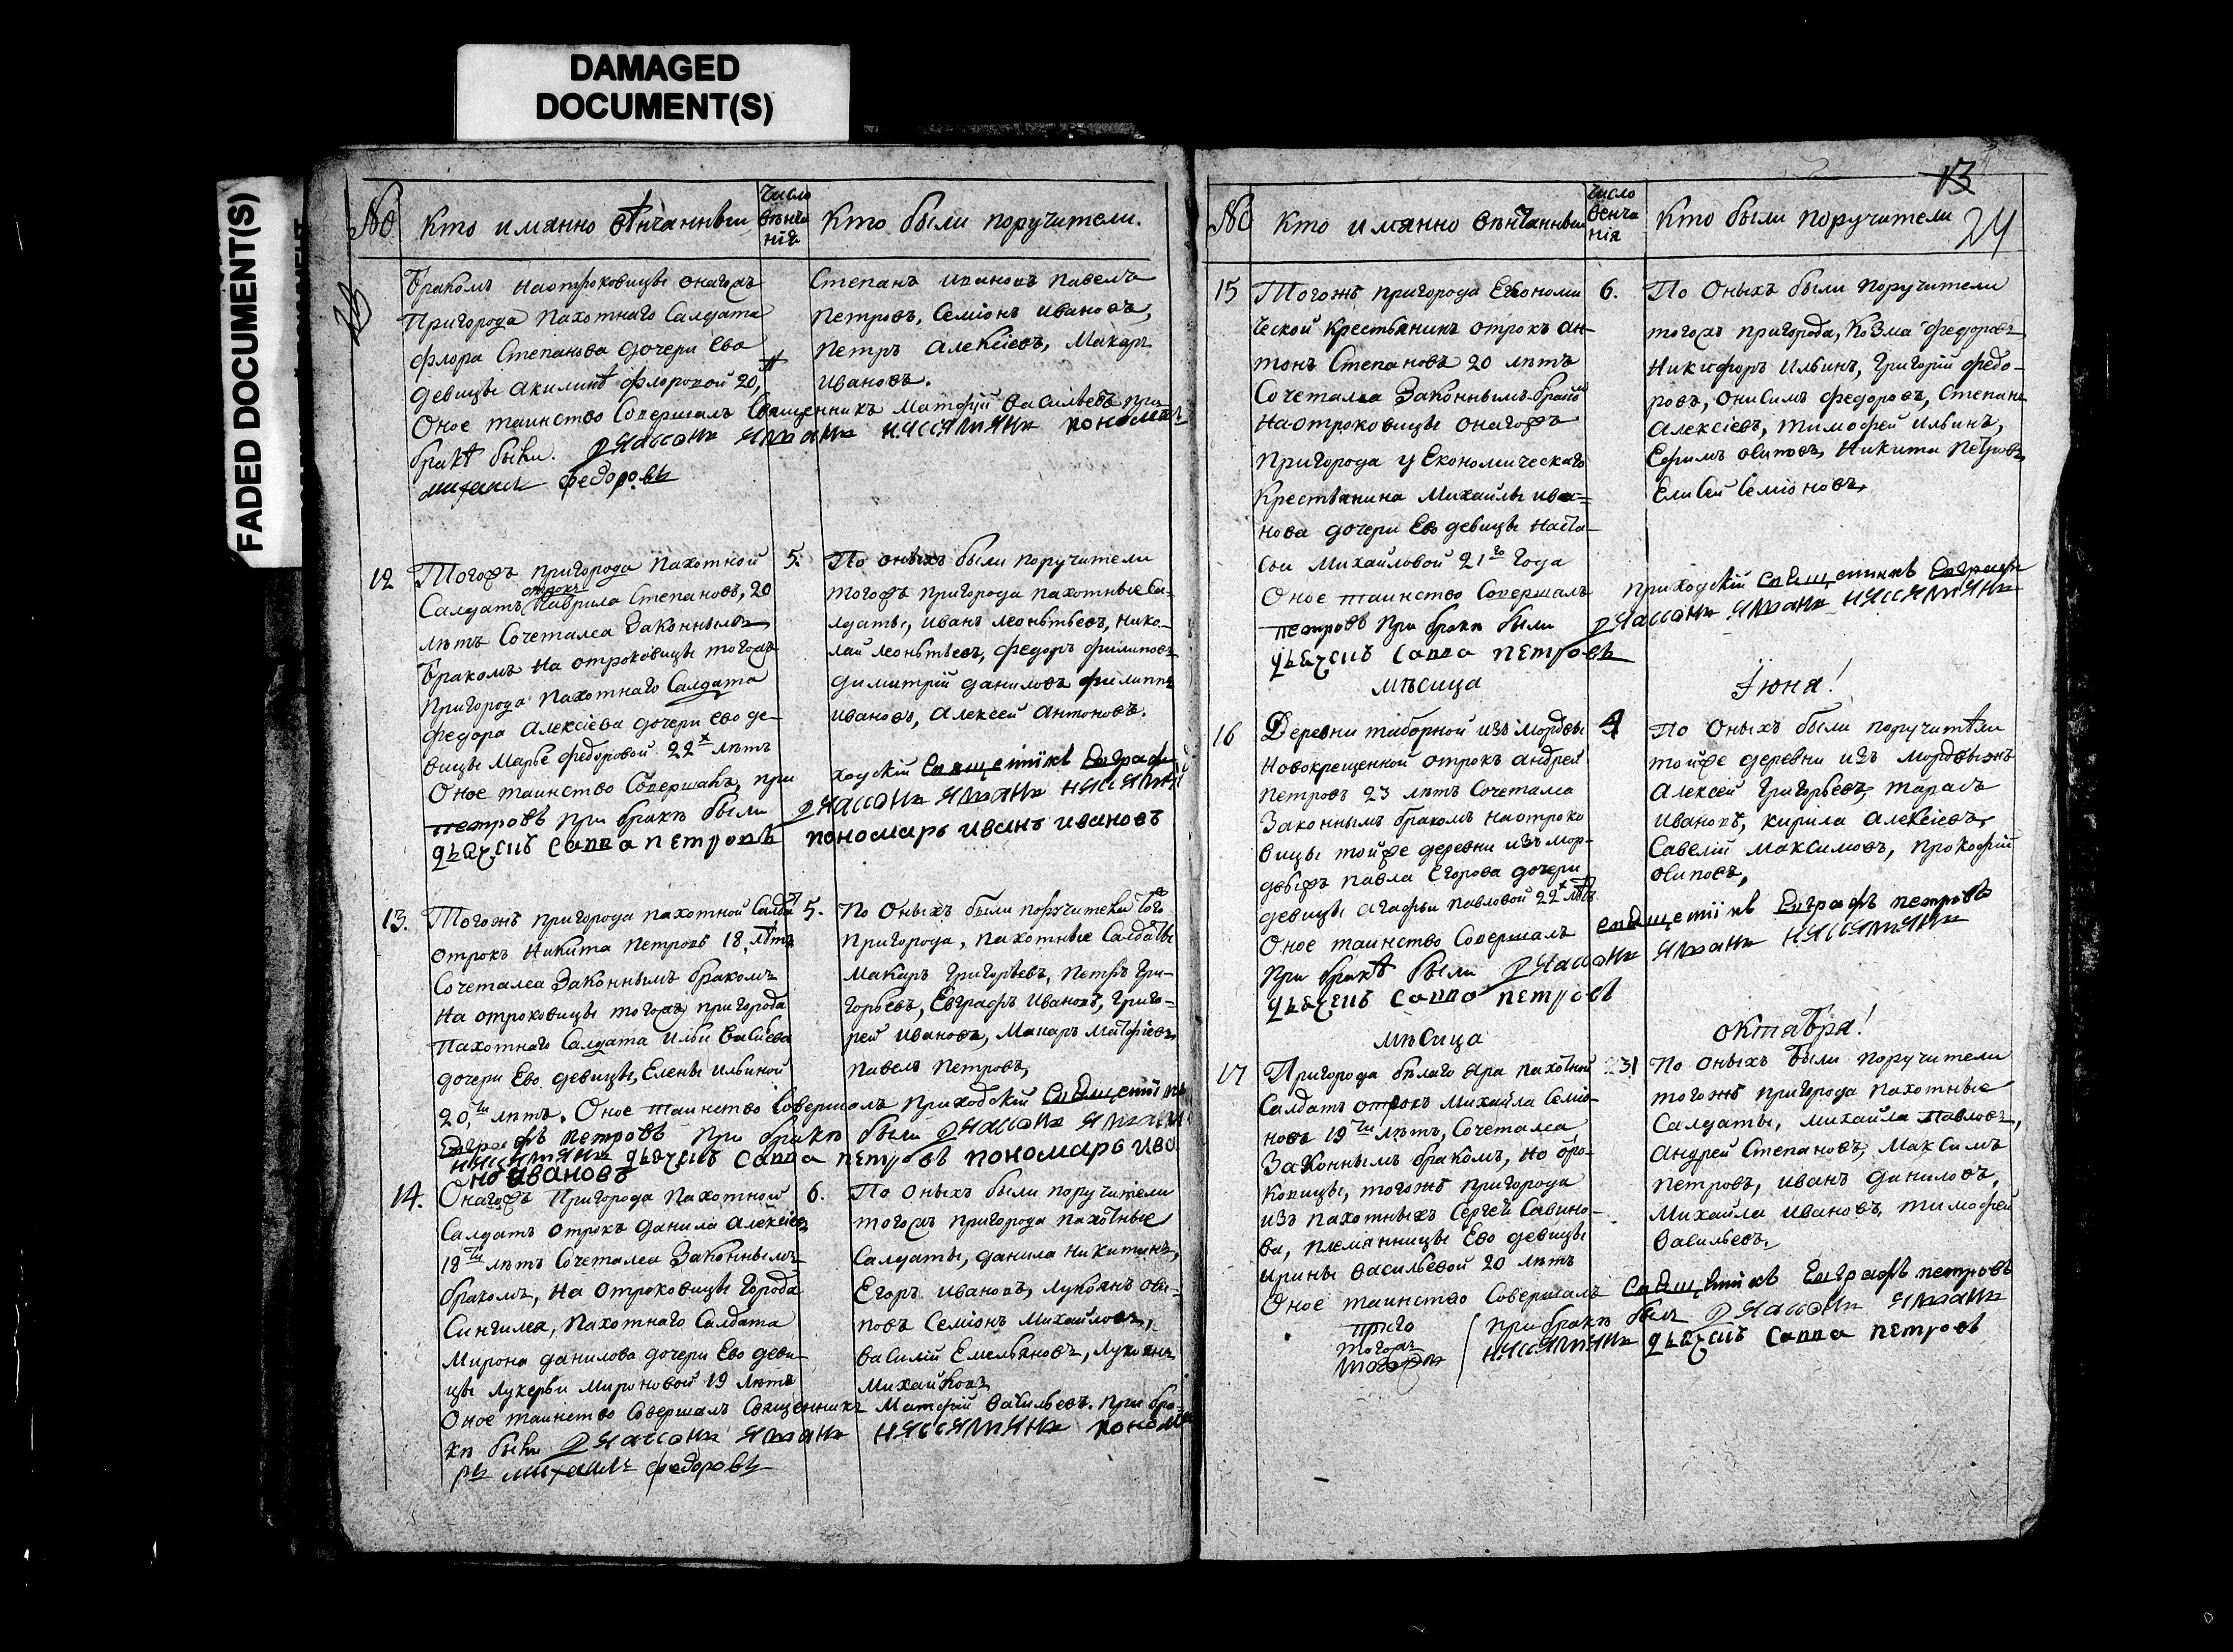 DAMAGED
DOCUMENT(S)
FADED DOCUMENT(S)
№
Кто имянно вѣнчанныи
Число
вѣнча
нія
Кто были поручители.
бракомъ наотроковицы онагожъ
Пригорода пахотнаго Салдата
флора Степанова дочери Ево
девицы акилинѣ флоровой 20,
Оное таинство Совершалъ Священникъ Матфій Васильевъ при
бракѣ были.
михаилъ федоровъ
Степанъ ивановъ павелъ
петровъ, Семіонъ ивановъ,
петръ алексіевъ, Макаръ
ивановъ.
пономарь
12
Тогожъ пригорода пахотной
отрокъ
Салдатъ Гаврила Степановъ, 20
лѣтъ Сочеталса Законнымъ
бракомъ на отроковицы тогожъ
Пригорода пахотнаго Салдата
федора алексіева дочери ево де-
вицы Марье федоровой 22х лѣтъ
Оное таинство Совершалъ, при
петровъ при бракѣ были
савва петровъ
5.
По оныхъ были поручители
тогожъ пригорода пахотные Са-
лдаты, иванъ леонътьевъ, нико-
лай леонътьевъ, федоръ филиповъ
димитрій даниловъ филиппъ
ивановъ, алексей антоновъ.
ходскій Священникъ Евграфъ
пономарь иванъ ивановъ
13.
Тогожъ пригорода пахотной Салдатъ
отрокъ Никита петровъ 18 лѣтъ
Сочеталса Законнымъ бракомъ
на отроковицы тогожъ пригорода
пахотнаго Салдата ильи
дочери Ево девицы, Елены ильиной
20ти лѣтъ. Оное таинство Совершалъ приходскій Священникъ
Евграфъ петровъ при бракѣ были
савва петровъ пономарь ива
нъ ивановъ
5.
По оныхъ были поручители того
пригорода, пахотные Салдаты
Макаръ Григорьевъ, петръ гри-
горьевъ, Евграфъ ивановъ, григо-
рей ивановъ, Макаръ Матфіевъ,
павелъ петровъ,
14.
Онагожъ пригорода пахотной
Салдатъ отрокъ данила алексіевъ
18ти лѣтъ Сочеталса Законнымъ
бракомъ, на отроковицы города
Сингилея, пахотнаго Салдата
Мирона данилова дочери Ево деви
цы Лукерьи Мироновой 19 лѣтъ
Оное таинство Совершалъ Священникъ Матфій Васильевъ. при бра-
кѣ были
рь михаилъ федоровъ
6.
По оныхъ были поручители
тогожъ пригорода пахотные
Салдаты, данила никитинъ,
Егоръ ивановъ, лукоянъ оси-
повъ Семіонъ Михайловъ,
василій Емельяновъ, лукоянъ
Михайловъ
пономо
13
24
№
Кто имянно вѣнчанныи
число
венча
нія
Кто были поручители
15
Тогожъ пригорода Економи
ческой крестьянинъ отрокъ ан-
тонъ Степановъ 20 лѣтъ
Сочеталса Законнымъ бракомъ
наотроковицы онагожъ
Пригорода у Економическаго
Крестьянина Михайлы ива-
нова дочери Ево девицы наста-
сьи Михайловой 21го года
Оное таинство Совершалъ
петровъ при бракѣ были
савва петровъ
6.
По оныхъ были поручители
тогожъ пригорода, Козма федоровъ
Никифоръ ильинъ, Григорій федо-
ровъ, онисимъ федоровъ, Степанъ
алексіевъ, тимофей ильинъ,
Ефимъ осиповъ, никита петровъ
Елисей Семіоновъ,
приходскій священникъ Евграфъ
мѣсица
Іюня!
16
Деревни таборной изъ мордвы
новокрещенной отрокъ андрей
петровъ 23 лѣтъ Сочеталса
Законнымъ бракомъ наотроко
вицы тойже деревни изъ мор-
двыжъ павла Егорова дочери
девицы агафьи павловой 22х лѣтъ
Оное таинство Совершалъ
при бракѣ были
савва петровъ
4
По оныхъ были поручители
тойже деревни изъ мордвыжъ
алексей григорьевъ, тарасъ
ивановъ, кирила алексіевъ,
Савелій максимовъ, прокофій
осиповъ,
священникъ Евграфъ петровъ
мѣсица
октабря!
17
Пригорода бѣлаго яра пахотной
Салдатъ отрокъ Михайла Семіо-
новъ 19ти лѣтъ, Сочеталса
Законнымъ бракомъ, на отро-
ковицы, тогожъ пригорода
изъ пахотныхъ Сергея Савино-
ва, племянницы Ево девицы
ирины васильевой 20 лѣтъ
Оное таинство Совершалъ
при бракѣ был
31
По оныхъ были поручители
тогожъ пригорода пахотные
Салдаты, михайла павловъ,
андрей Степановъ, Максимъ
петровъ, иванъ даниловъ,
Михайла ивановъ, тимофей
васильевъ,
священникъ Евграфъ петровъ
савва петровъ
тогожъ